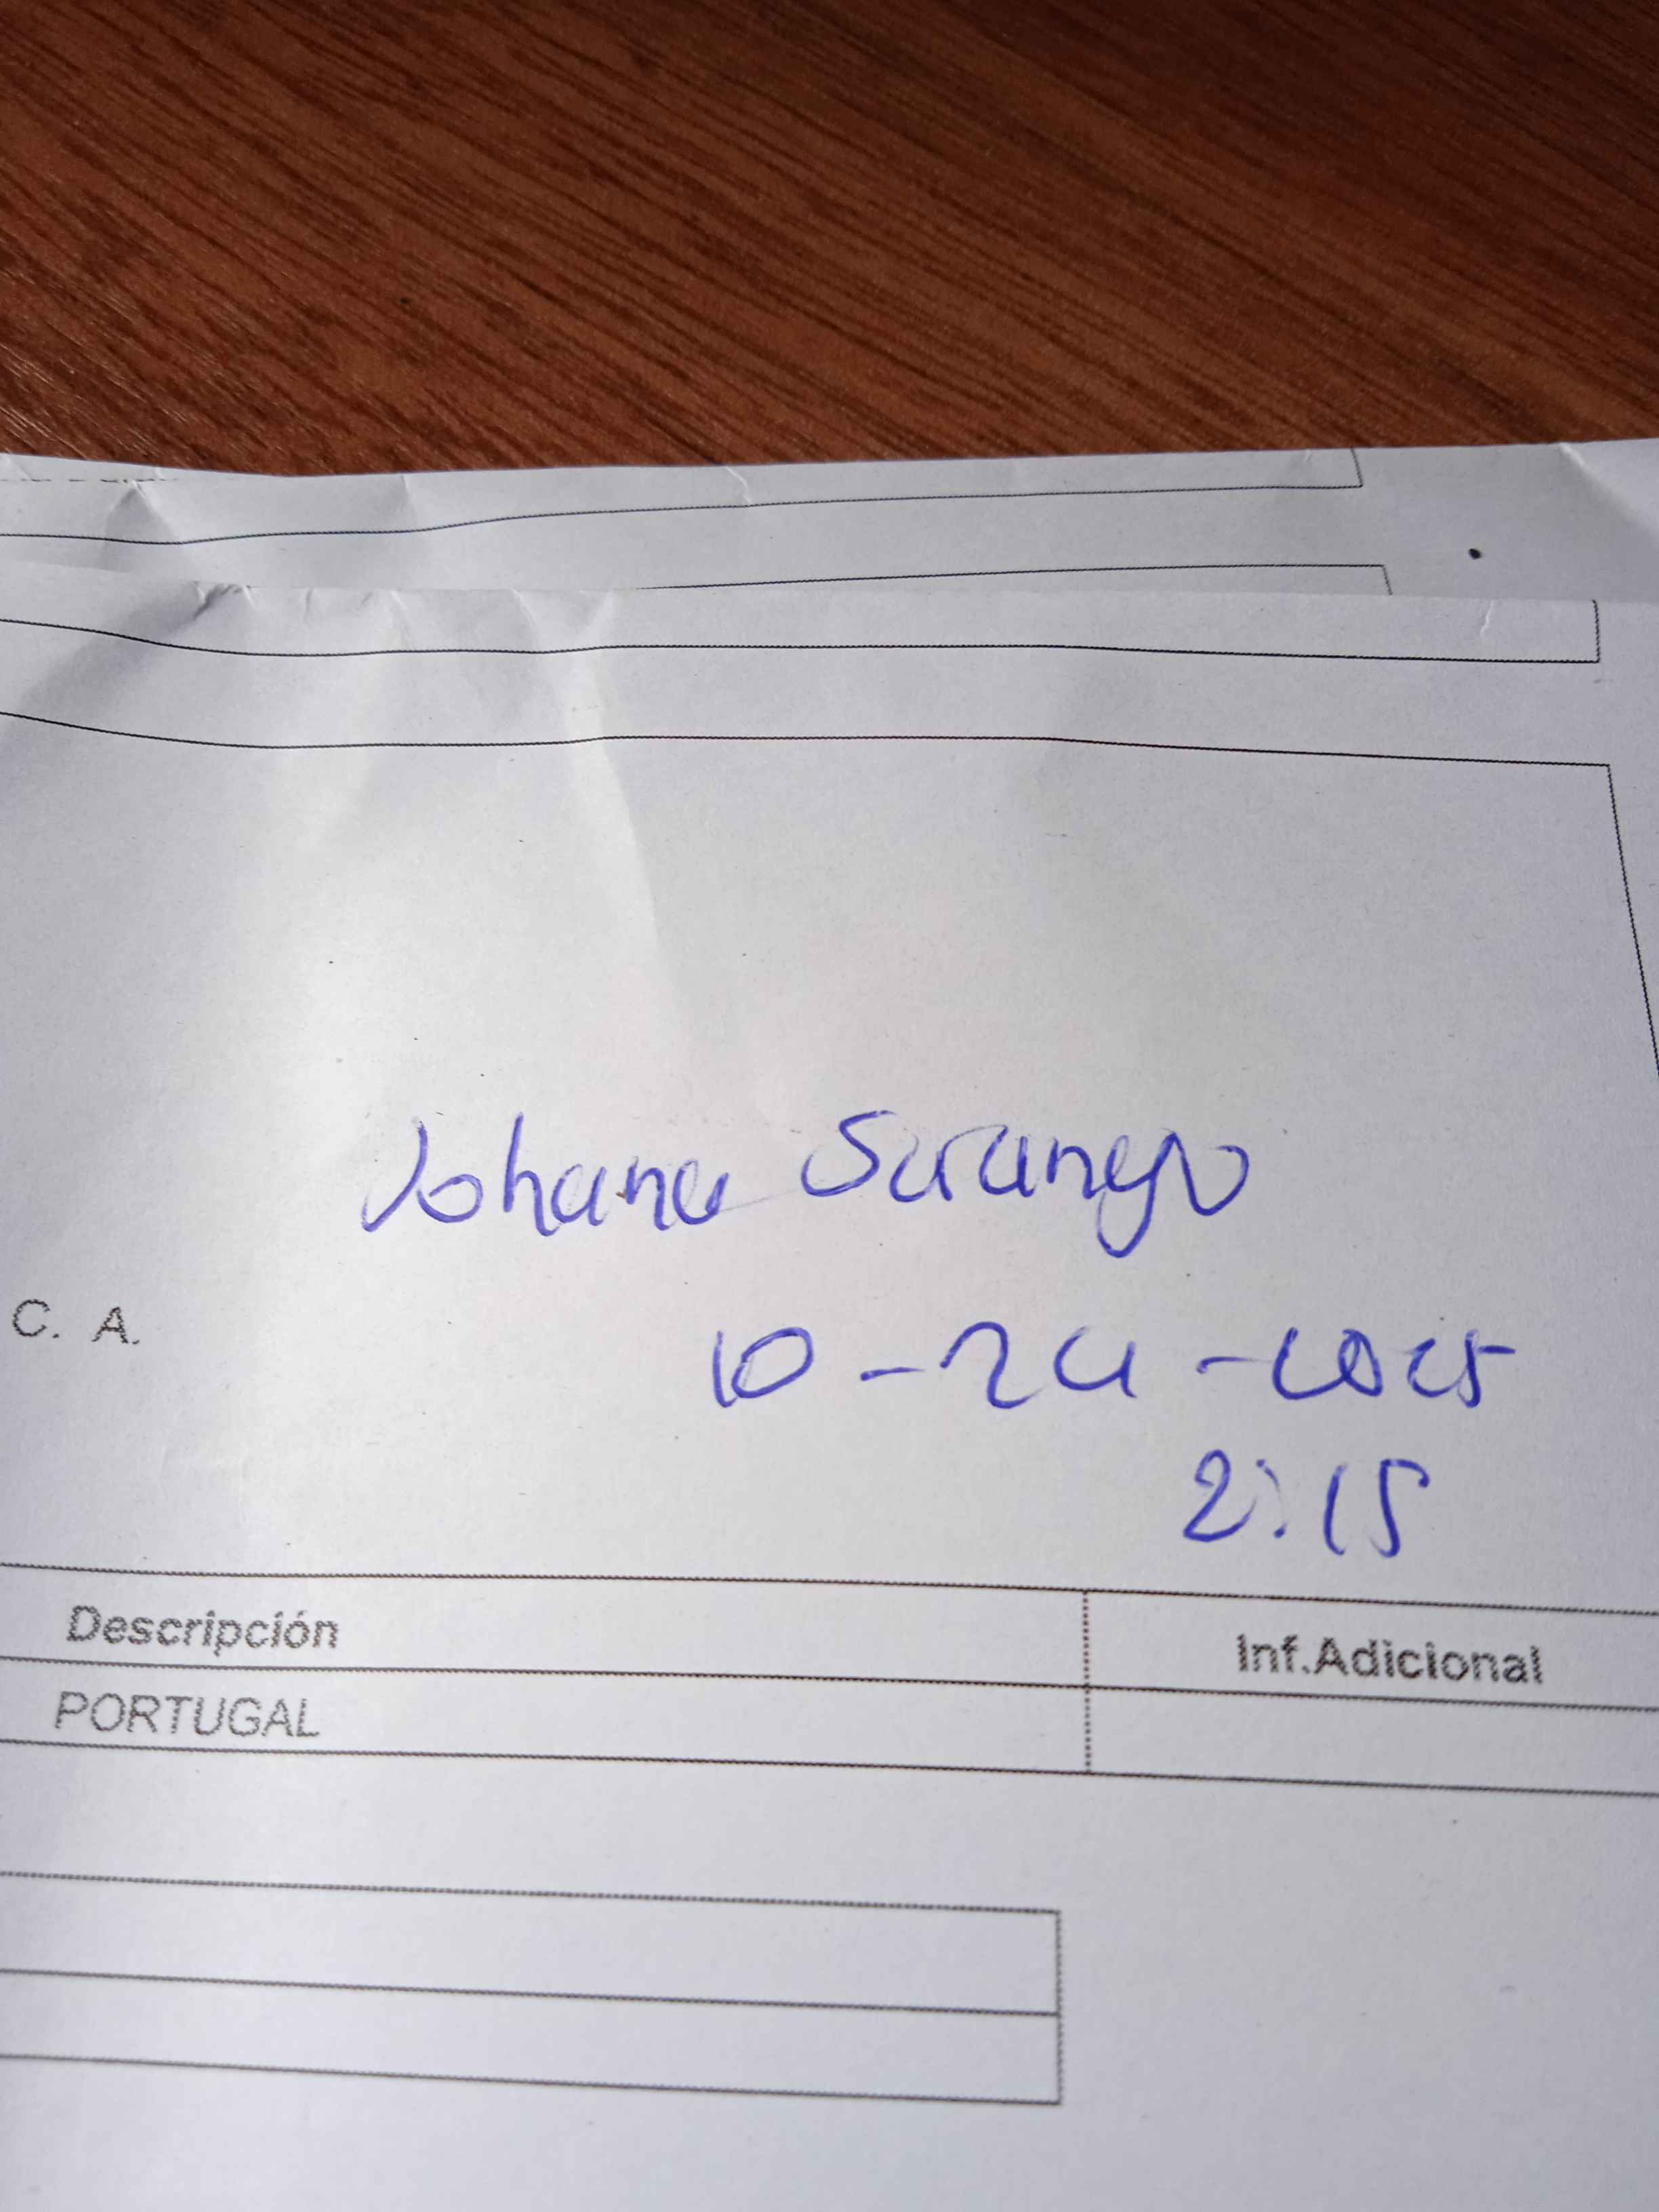 Johana Sarango
C. A.
10-24-2025
2:15
Descripción Inf.Adicional
PORTUGAL